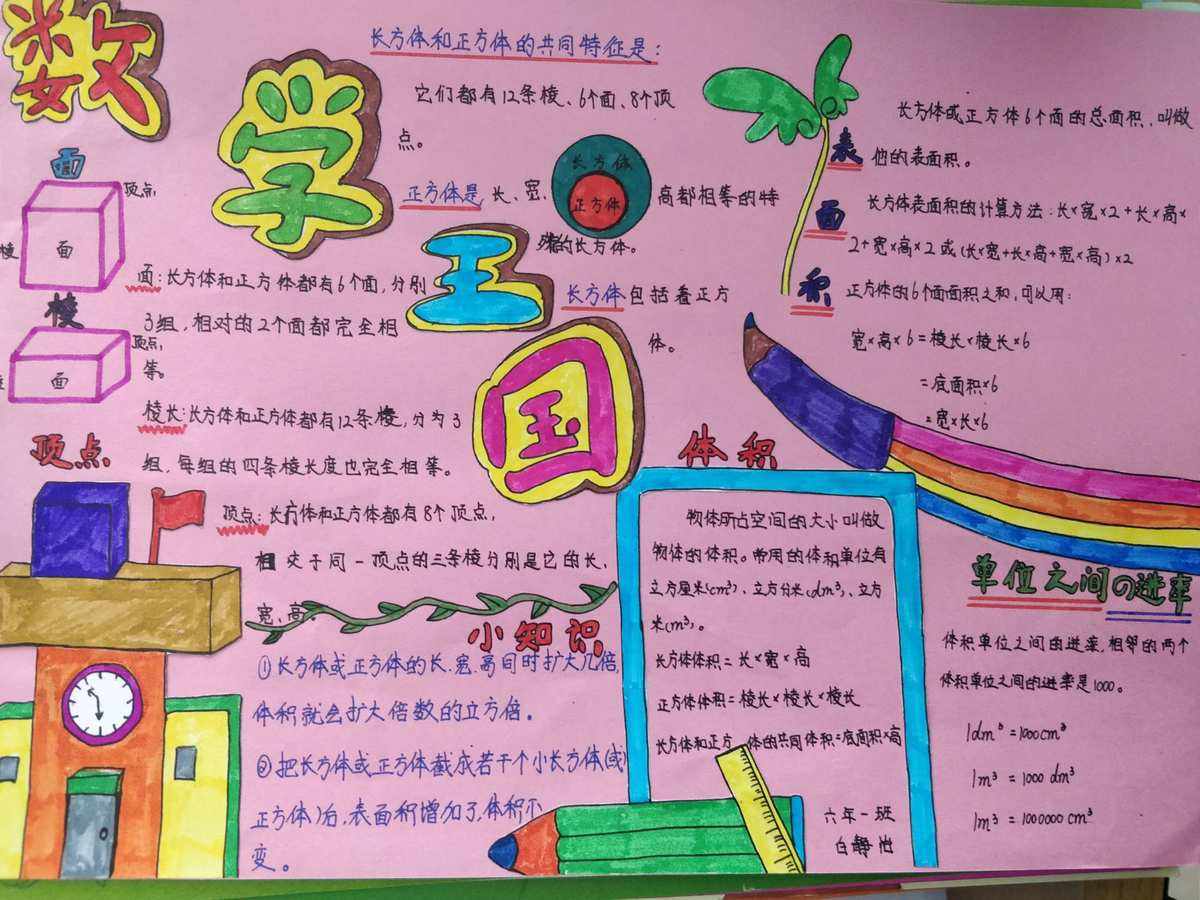 数学王国
长方体和正方体的共同特征是：
它们都有12条棱、6个面、8个顶
点。
正方体是长、宽、高都相等的特
殊的长方体。
长方体
正方体
长方体包括着正方
体。
面
顶点
棱
面
棱
顶点
面
面：长方体和正方体都有6个面，分别
3组，相对的2个面都完全相
等。
棱长：长方体和正方体都有12条棱，分为3
组，每组的四条棱长度也完全相等。
顶点
顶点：长方体和正方体都有8个顶点，
相交于同一顶点的三条棱分别是它的长、
宽、高。
小知识
①长方体或正方体的长、宽、高同时扩大几倍，
体积就会扩大倍数的立方倍。
②把长方体或正方体截成若干个小长方体（或
正方体）后，表面积增加了，体积不
变。
表面积
长方体或正方体6个面的总面积，叫做
他的表面积。
长方体表面积的计算方法：长×宽×2+长×高×
2+宽×高×2或(长×宽+长×高+宽×高)×2
正方体的6个面面积之和，可以用：
宽×高×6=棱长×棱长×6
=底面积×6
=宽×长×6
体积
物体所占空间的大小叫做
物体的体积。常用的体积单位有
立方厘米(cm³)、立方分米(dm³)、立方
米(m³)。
长方体体积=长×宽×高
正方体体积=棱长×棱长×棱长
长方体和正方体的共同体积=底面积×高
六年一班
白静
单位之间の进率
体积单位之间的进率，相邻的两个
体积单位之间的进率是1000。
1dm³=1000cm³
1m³=1000dm³
1m³=1000000cm³